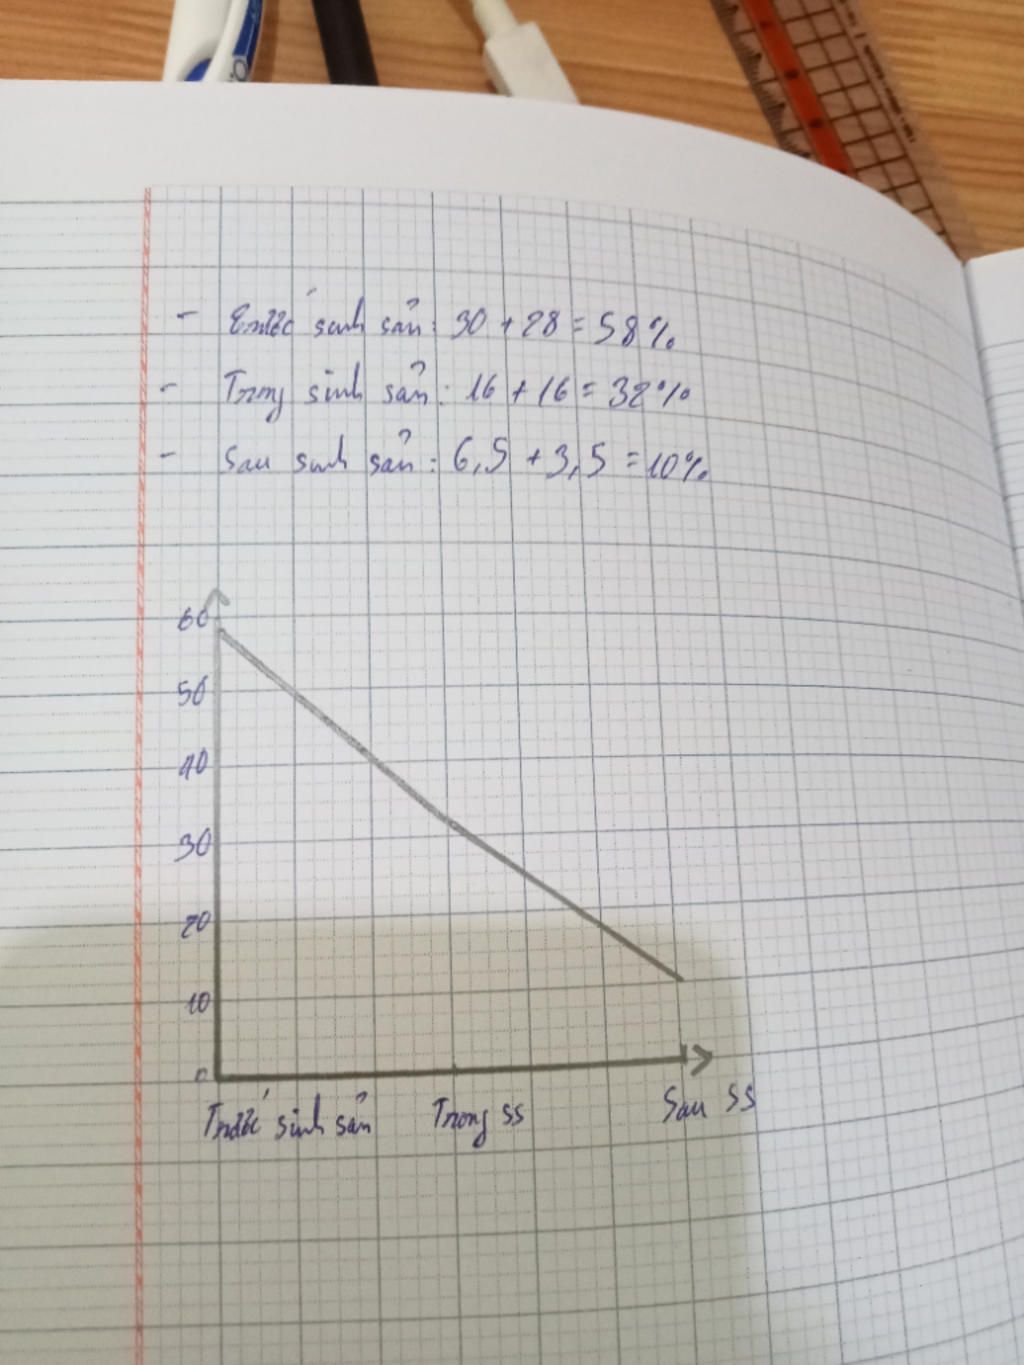 - Trước sinh sản: 30 + 28 = 58%
- Trong sinh sản: 16 + 16 = 32%
- Sau sinh sản: 6,5 + 3,5 = 10%
60
50
40
30
20
10
0
Trước sinh sản Trong ss Sau ss